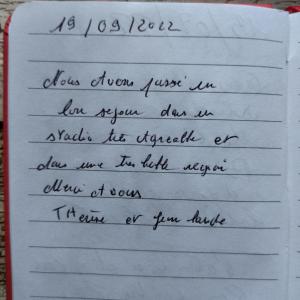 19/09/2022
Nous Avons passé un
bon sejour dans un
studio très Agreable et
dans une très belle région
Merci A vous
THerese et jean